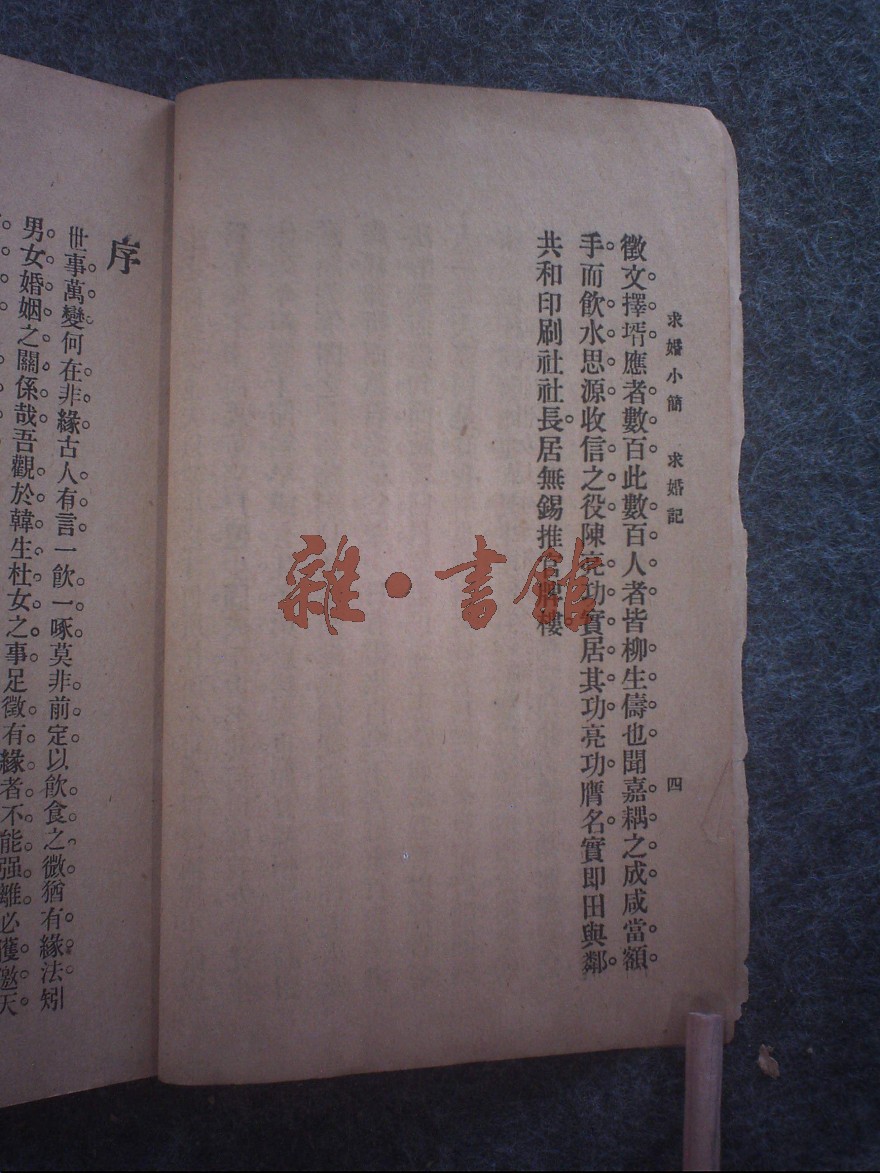 求婚小簡 求婚記
四
徵文擇壻應者數百此數百人者皆柳生儔也聞嘉耦之成咸當額
手而飲水思源收信之役陳亮功實居其功亮功贗名實即田與鄰
共和印刷社社長居無錫推官牌樓
序
世事萬變何在非緣古人有言一飲一啄莫非前定以飲食之微猶有緣法矧
男女婚姻之關係哉吾觀於韓生杜女之事足徵有緣者不能强離必獲邀天
雜·書館